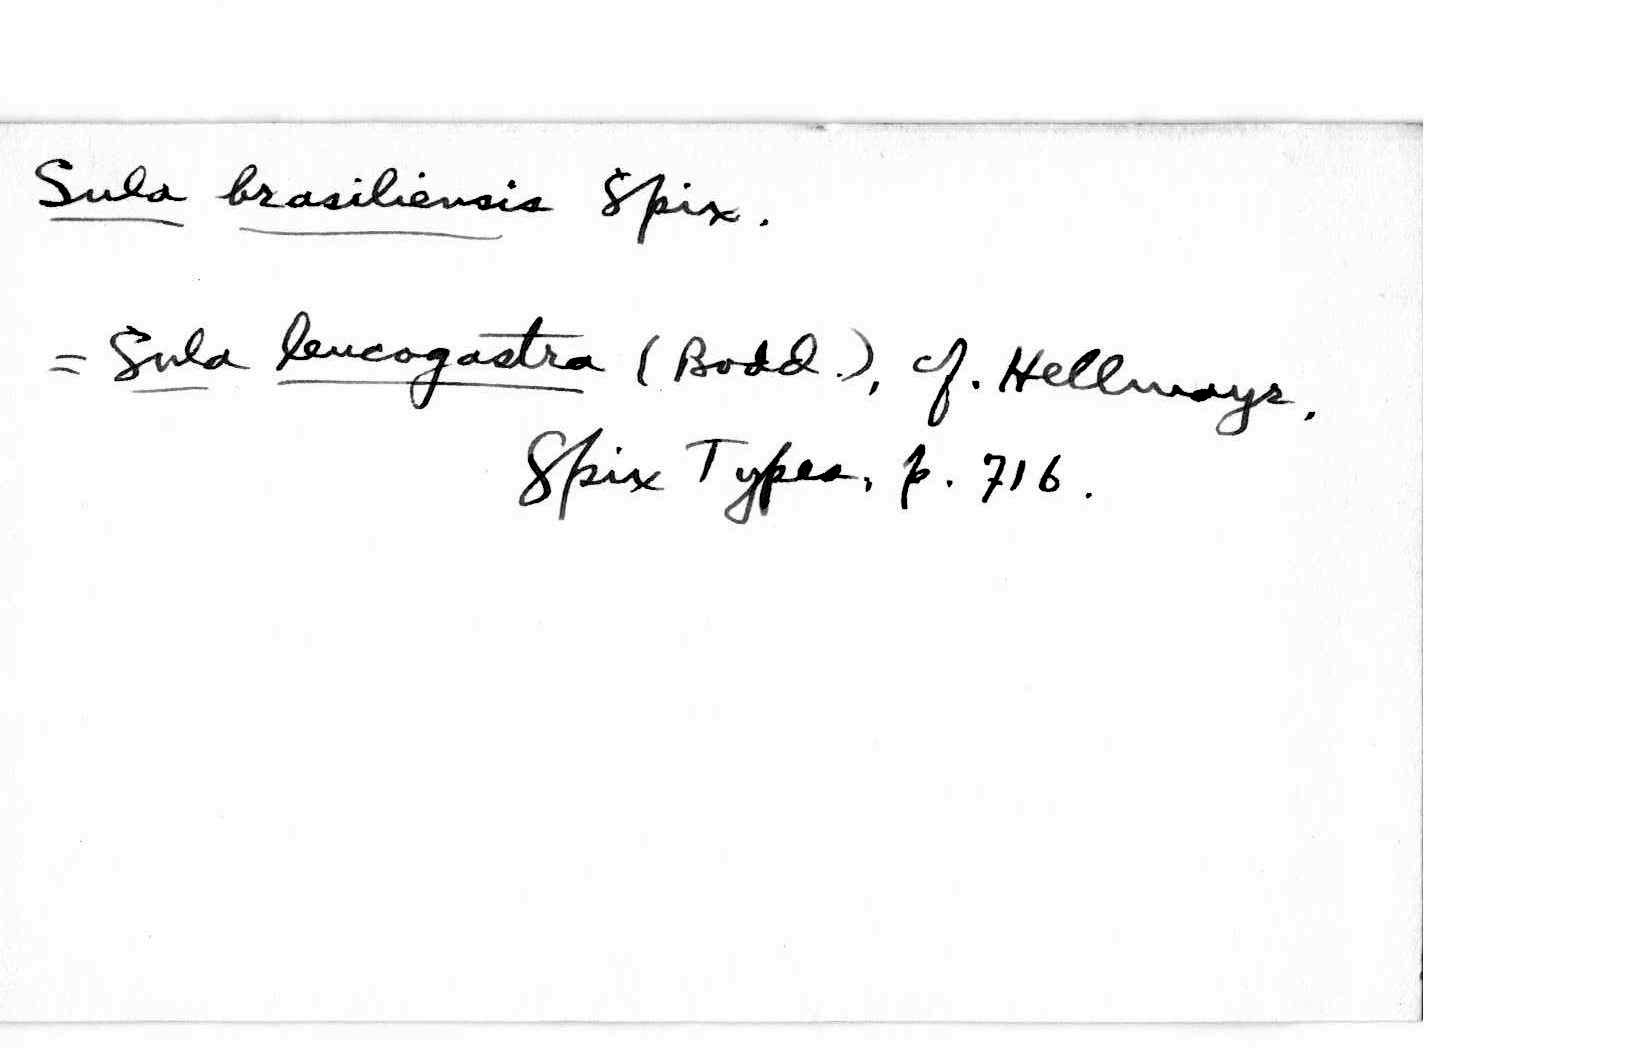 Sula brasiliensis Spix.
= Sula leucogastra (Bodd.), cf. Hellmayr,
Spix Types, p. 716.